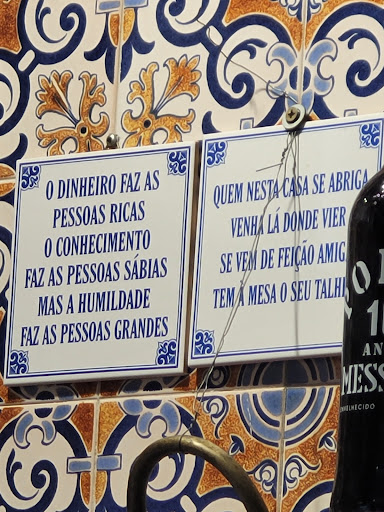 O DINHEIRO FAZ AS
PESSOAS RICAS
O CONHECIMENTO
FAZ AS PESSOAS SÁBIAS
MAS A HUMILDADE
FAZ AS PESSOAS GRANDES
QUEM NESTA CASA SE ABRIGA
VENHA LÁ DONDE VIER
SE VEM DE FEIÇÃO AMIG
TEM A MESA O SEU TALH
1
AN
MESS